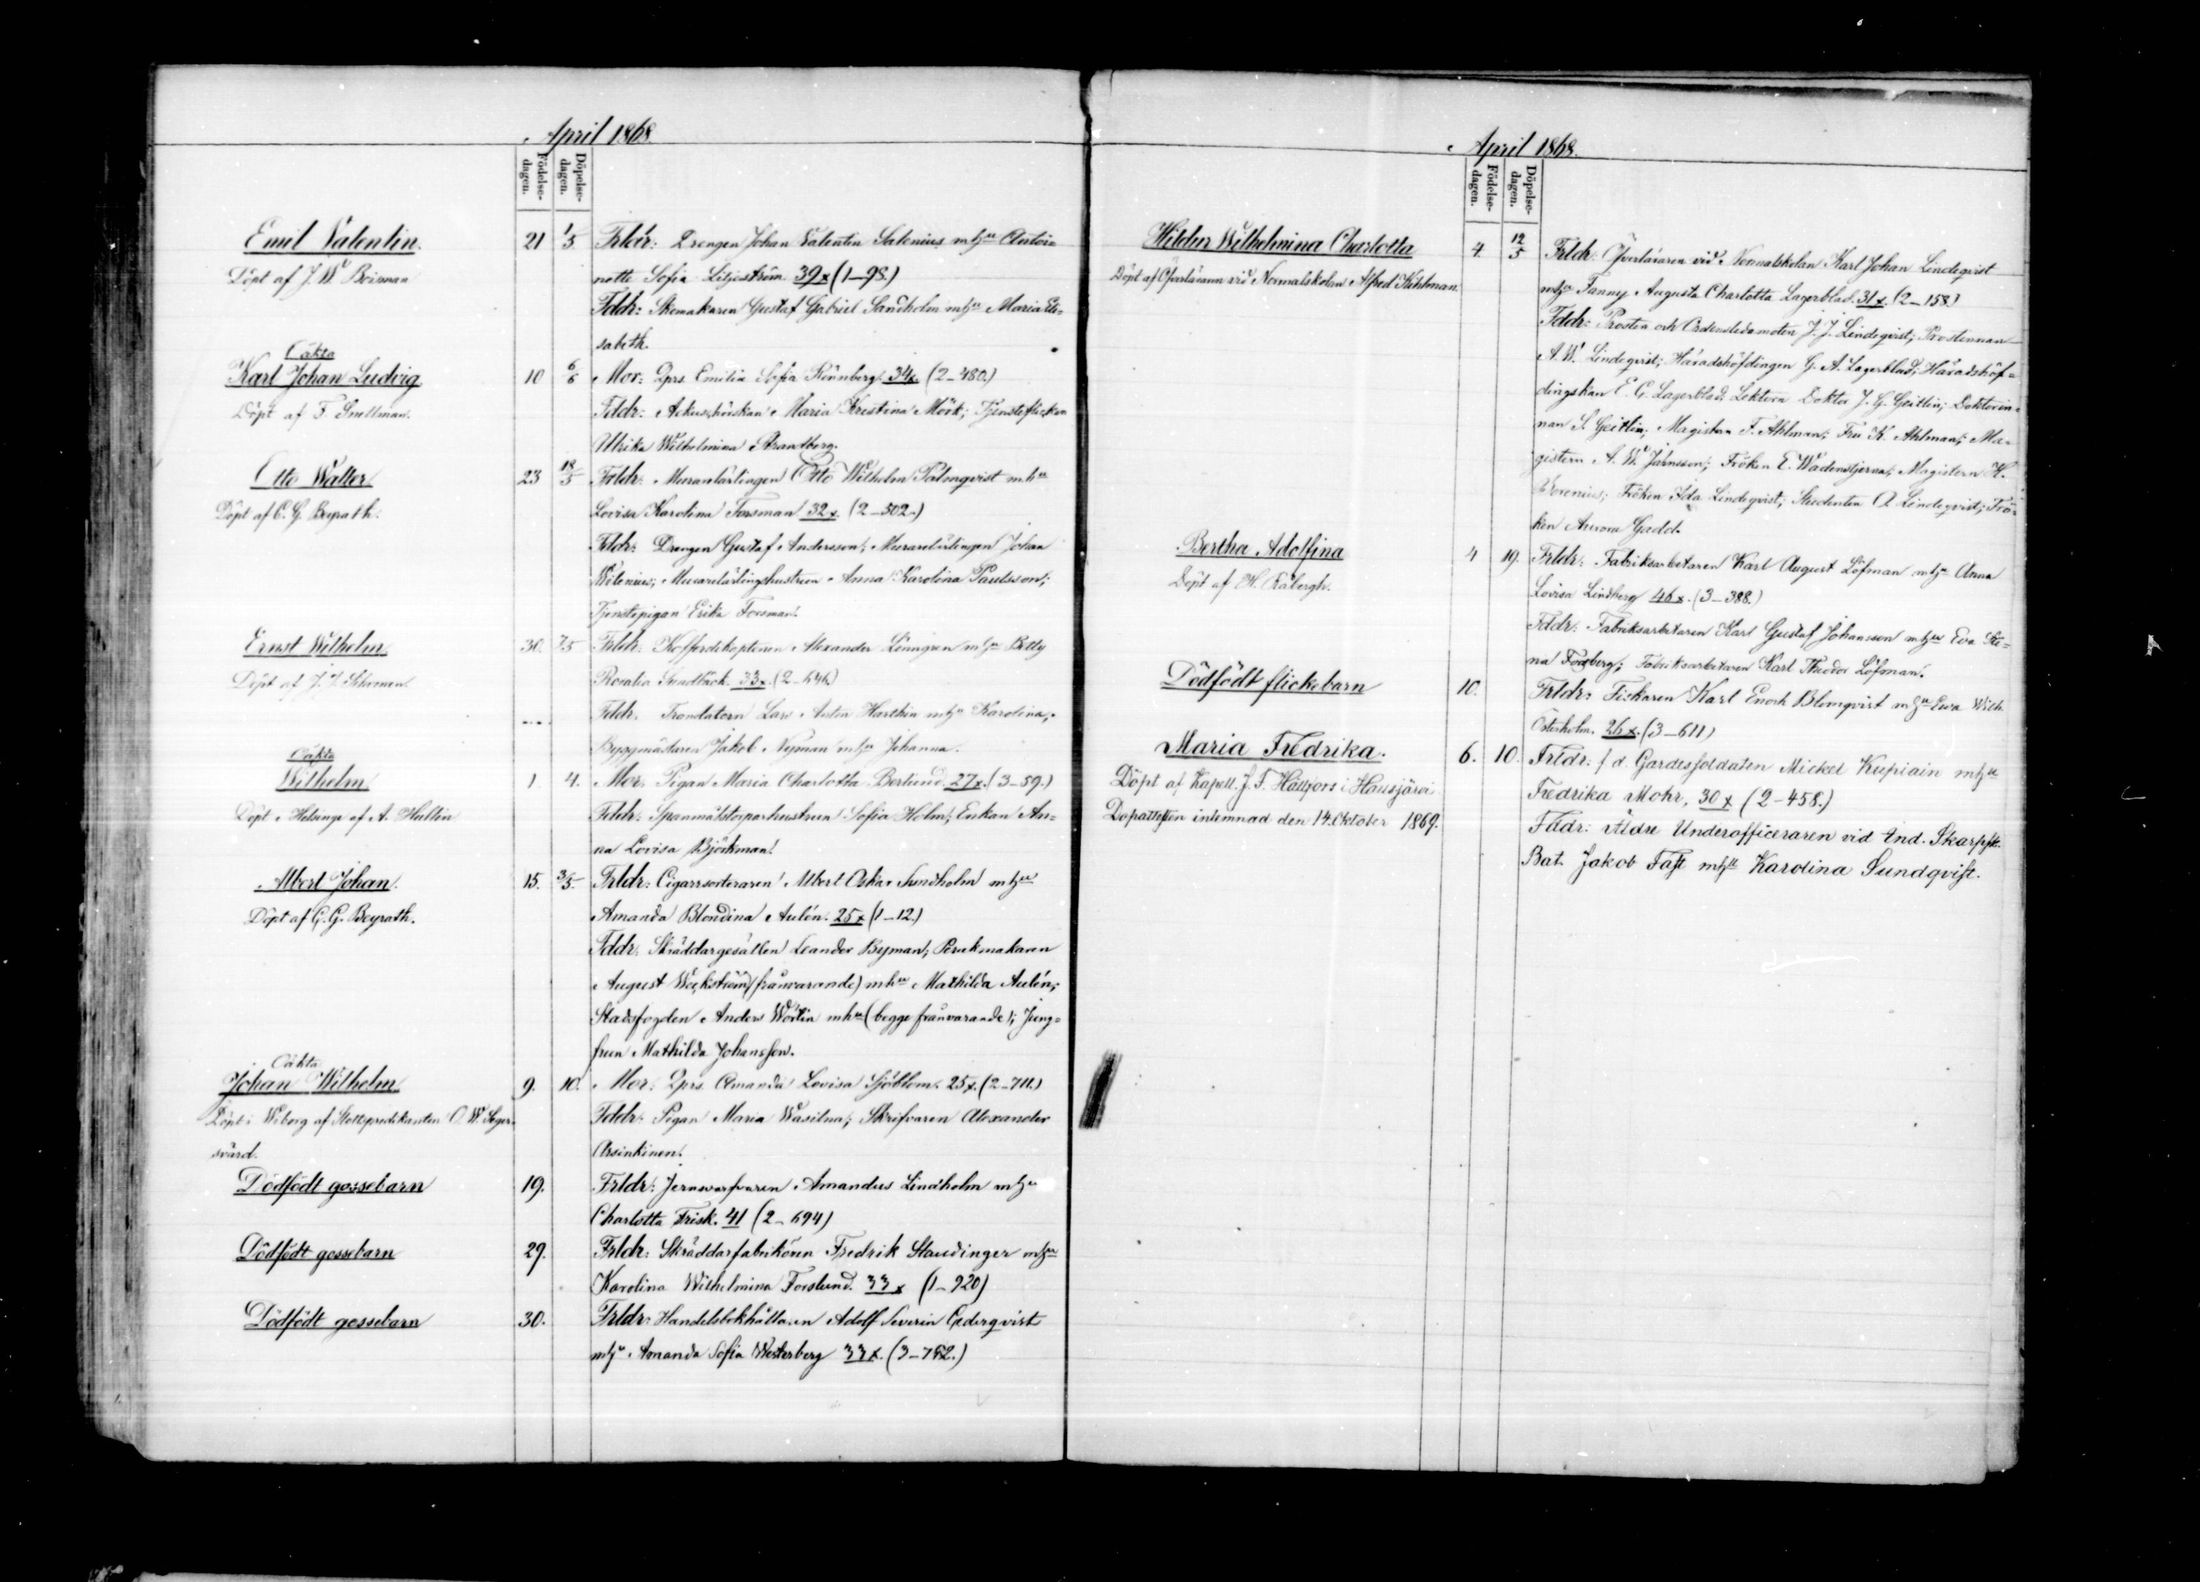 April 1868.
Födelse-dagen.
Döpelse-dagen.
Emil Valentin.
Döpt af J. W. Boisman
21 1/5
Frldr: Drengen Johan Valentin Salenius mhu Antoi-
nette Sofia Liljeström. 39x (1-98.)
Fddr: Skomakaren Gustaf Gabriel Sandholm mhu Maria Eli-
sabeth.
Oäkta
Karl Johan Ludvig
Döpt af F. Snellman.
10 6/6
Mor: Qprs. Emilia Sofia Rönnberg. 34x. (2-480.)
Fddr: Maria Kristina Möök; Tjensteflickan
Ulrika Wilhelmina Strandberg.
Otto Walter
Döpt af C. G. Beyrath.
23 18/5
Frldr: Murarelärlingen Otto Wilhelm Palmqvist mhu
Lovisa Karolina Forsman 32x. (2-302.)
Fddr: Drengen Gustaf Andersson; Murarelärlingen Johan
Wilenius; Murarelärlingshustrun Anna Karolina Paulsson;
Tjenstepigan Erika Forsman.
Ernst Wilhelm
Döpt af J. J.
30. 7/5
Frldr: Kofferdikaptenen Alexander Lönngren mhu Betty
Rosalia Sundbäck. 33x. (2-646)
Fddr: Lars Anton Harthin mhu Karolina;
Byggmästaren Jakob Nyman mhu Johanna.
Oäkta
Wilhelm
Döpt i Helsinge af A. Hallin
1 4.
Mor: Pigan Maria Charlotta Berlund. 27x. (3-59.)
Fddr: Spanmålstorparhustrun Sofia Holm; Enkan An-
na Lovisa Björkman.
Albert Johan.
Döpt af C. G. Beyrath.
15. 3/5.
Frldr: Cigarrsorteraren Albert Oskar Sundholm mhu
Amanda Blondina Aulén. 25x (1-12.)
Fddr: Skräddargesällen Leander Byman; Perukmakaren
August Weckström (frånvarande) mhu Mathilda Aulén;
Stadsfogden Anders Wörlin mhu (begge frånvarande); Jung-
frun Mathilda Johansson.
Oäkta
Johan Wilhelm
Döpt i Wiborg af Slottspredikanten O. W. Seger-
svärd.
9. 10.
Mor: Qprs. Amanda Lovisa Sjöblom. 25x. (2-711.)
Fddr: Pigan Maria Wasilna; Skrifvaren Alexander
Arsinkinen.
Dödfödt gossebarn
19.
Frldr: Jernvarfvaren Amandus Lindholm mhu
Charlotta Frisk. 41 (2-694)
Dödfödt gossebarn
29.
Frldr: Skräddarfabrikören Fredrik Staudinger mhu
Karolina Wilhelmina Forslund. 33x (1-920)
Dödfödt gossebarn
30.
Frldr: Handelsbokhållaren Adolf Severin Cederqvist
mhu Amanda Sofia Westerberg 33x. (3-752.)
April 1868.
Födelse-dagen.
Döpelse-dagen.
Hildur Wilhelmina Charlotta
Döpt af Öfverläraren vid Normalskolan Alfred Kihlman.
4. 12/5
Frldr: Öfverläraren vid Normalskolan Karl Johan Lindeqvist
mhu Fanny Augusta Charlotta Lagerblad. 31x. (2-158.)
Fddr: Prosten och Ordensledamoten J. J. Lindeqvist; Prostinnan
A. W. Lindeqvist; Häradshöfdingen G. A. Lagerblad; Häradshöf-
dingskan E. C. Lagerblad; Lektorn Doktor J. G. Geitlin; Doktorin-
nan S. Geitlin; Magistern F. Ahlman; Fru K. Ahlman; Ma-
gistern A. W. Jahnsson; Fröken E. Wadenstjerna; Magistern H.
Borenius; Fröken Ida Lindeqvist; Studenten A. Lindeqvist; Frö-
ken Aurora Gadd.
Bertha Adolfina
Döpt af H. Råbergh.
4 19.
Frldr: Fabriksarbetaren Karl August Löfman mhu Anna
Lovisa Lindberg 46x. (3-388.)
Fddr: Fabriksarbetaren Karl Gustaf Johansson mhu Eva Sti-
na Forsberg; Fabriksarbetaren Karl Theodor Löfman.
Dödfödt flickebarn
10.
Frldr: Fiskaren Karl Enoch Blomqvist mhu Ewa Wilh.
Österholm. 26x. (3-611)
Maria Fredrika.
Döpt af Kapell. J. F. Hällfors i Hausjärvi
Dopattesten inlemnad den 14. Oktober 1869.
6. 10.
Frldr: f. d. Gardessoldaten Mickel Kupiain mhu
Fredrika Mohr, 30x (2-458.)
Fddr: Äldre Underofficeraren vid Ind. Skarpsk.
Bat. Jakob Fast mhu Karolina Sundqvist.